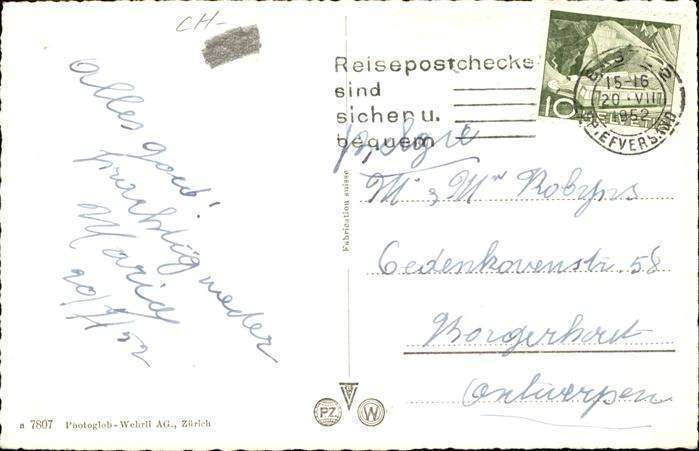 CH-
Reisepostchecks
sind
sicher u.
bequem
15-16
20. VII
1952
BRIEFVERSAND
10
Alles goed!
prachtig weder
Maria
20/7/52
Belgie
Mr & Mm Robyns
Cedenkovenstr. 58
Borgerhout
Antwerpen
Fabrication suisse
PZ
W
a 7807 Photoglob-Wehrli AG., Zürich